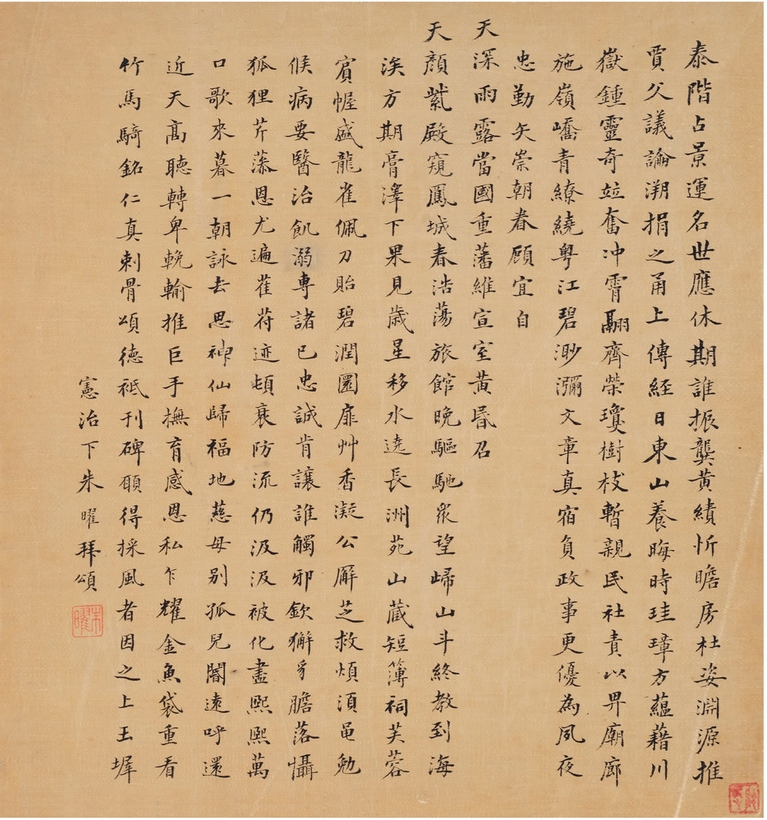 泰階占景運名世應休期誰振龔黃績忻瞻房杜姿淵源推
賈父議論溯捐之甬上傳經日東山養晦時珪璋方蘊藉川
嶽鍾靈奇竝奮冲霄翮齊榮瓊樹枝暫親民社責以畀廟廊
施嶺嶠青繚繞粤江碧渺瀰文章真宿負政事更優為夙夜
忠勤矢崇朝眷顧宜自
天深雨露當國重藩維宣室黃昏召
天顏紫殿窺鳳城春浩蕩旅館晚驅馳眾望歸山斗終教到海
涘方期膏澤下果見歲星移水遶長洲苑山藏短簿祠芙蓉
賔幄盛龍雀佩刀貽碧潤圜扉艸香凝公廨芝救煩須黽勉
候病要醫治飢溺專諸己忠誠肯讓誰觸邪欽獬豸膽落懾
狐狸芹藻恩尤遍萑苻迹頓衰防流仍汲汲被化盡熙熙萬
口歌來暮一朝詠去思神仙歸福地慈母别孤兒閽遠呼還
近天高聽轉卑輓輸推巨手撫育感恩私乍耀金魚袋重看
竹馬騎銘仁真刺骨頌德祗刊碑願得採風者因之上玉墀
憲治下朱曜拜頌
朱曜